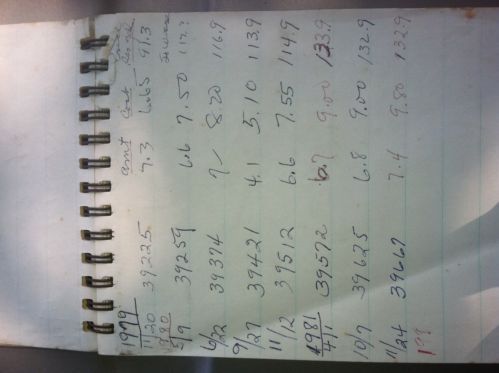 1979 amt Cost
11/20 39225 7.3 6.65 91.3
1980
5/9 39259 6.6 7.50
6/22 39374 7.— 8.20 116.9
9/27 39421 4.1 5.10 113.9
11/12 39512 6.6 7.55 114.9
1981
4/1 39572 6.7 9.00 133.9
10/7 39625 6.8 9.00 132.9
11/24 39667 7.4 9.80 132.9
198